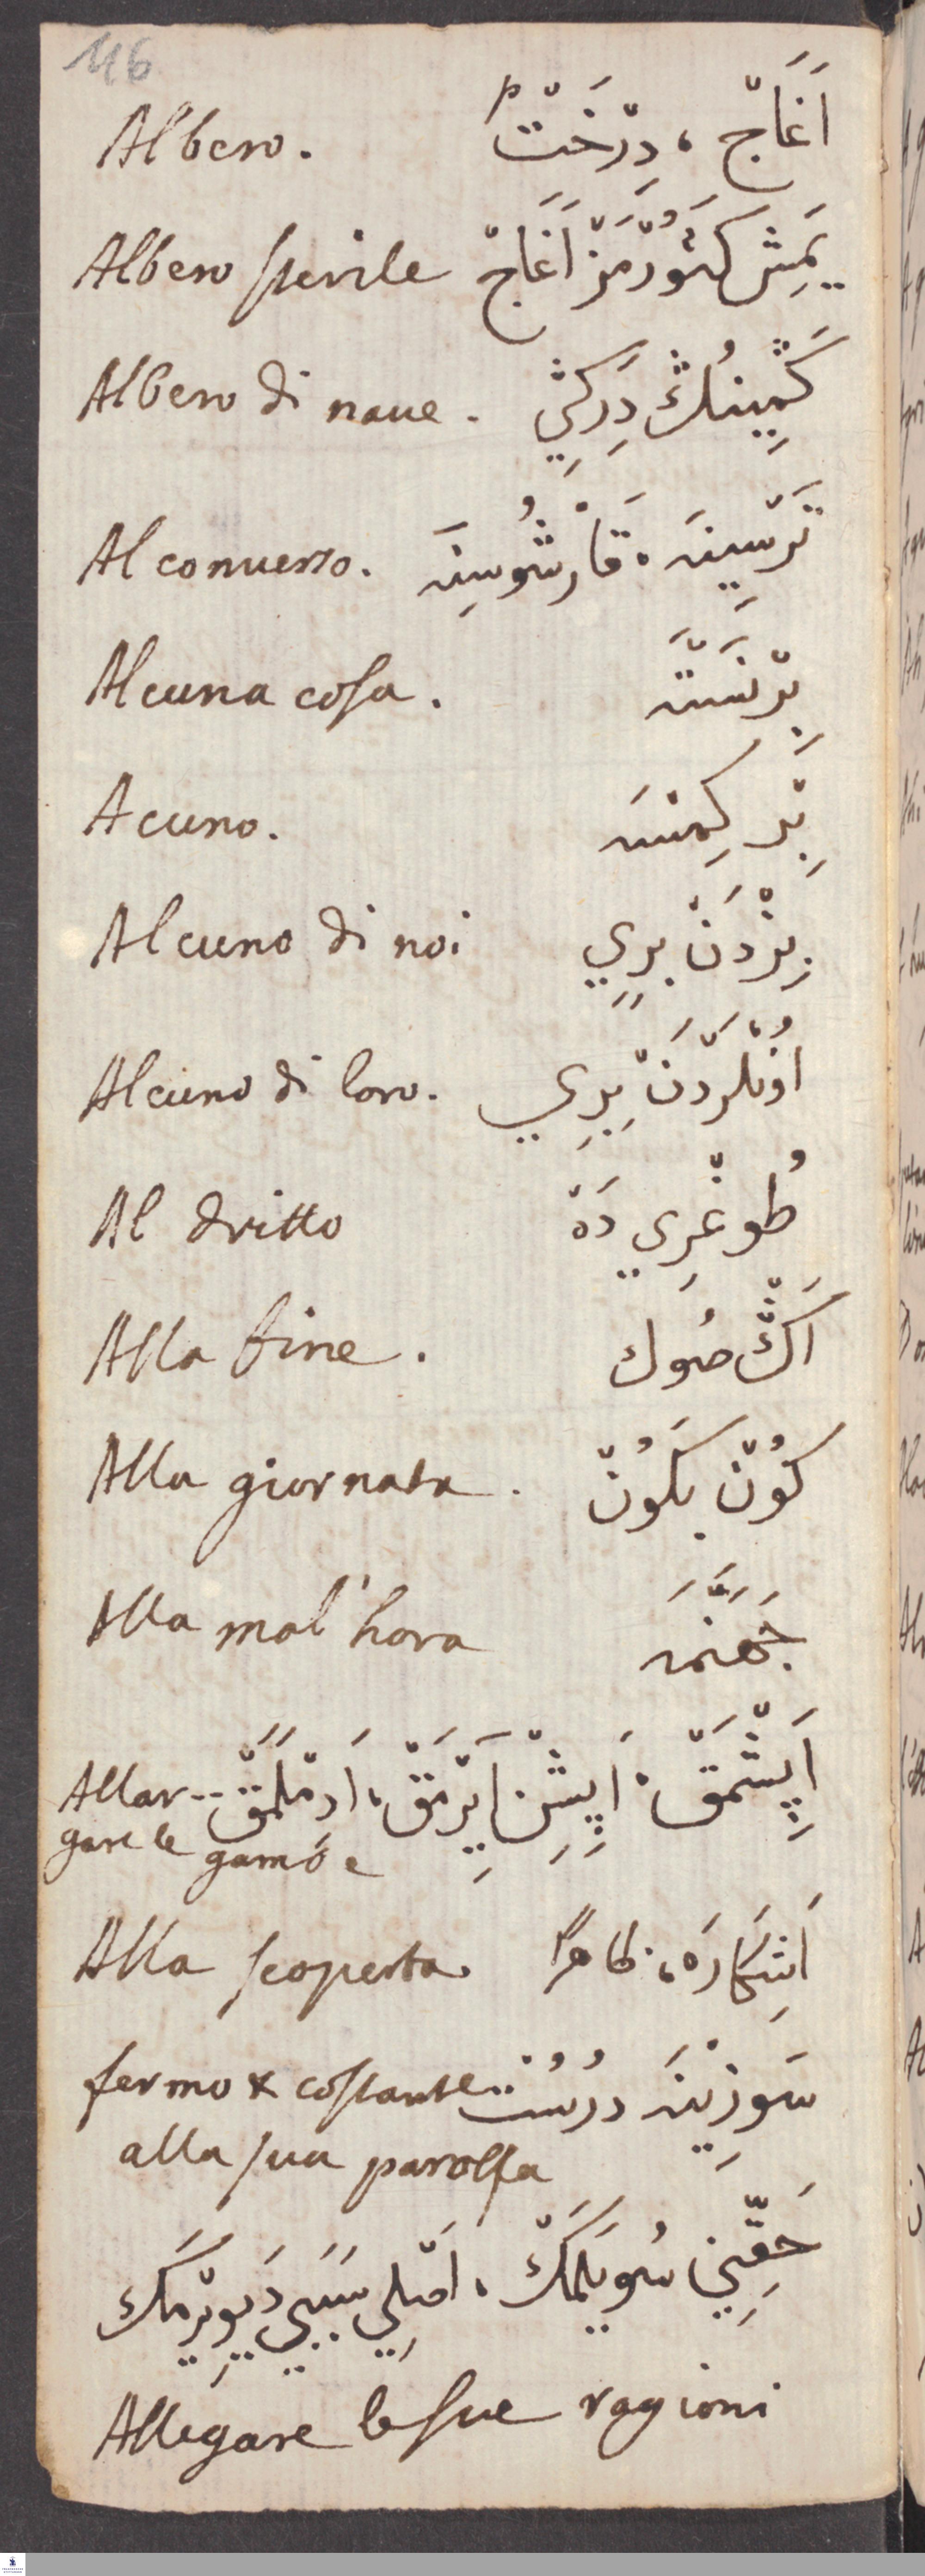 116
Albero. اَغَاجْ ، دِرَخْتْ
Albero sterile يَمِشْ كَتُورْمَزْ اَغَاجْ
Albero di naue. كَمِينُكْ دِرَكِي
Al conuerso. تَرْسِينَه ، قَارْشُوسِينَه
Alcuna cosa. بِرْنَسْنَه
Acuno. بِرْ كِمْسَه
Alcuno di noi بِزْدَنْ بِرِي
Alcuno di loro. اُونْلَرْدَنْ بِرِي
Al dritto طُوغْرِي دَهْ
Alla fine. اَكْ صُوك
Alla giornata. كُونْ بَكُونْ
Alla mal'hora جَهَنَّمَه
Allar- اَپِشْمَقْ ، اَپِشِنْ اَيِرْمَقْ ، اَدِمْلَمَقْ
gare le gambe
Alla scoperta. اَشِكَارَه ، ظاهراً
fermo & costante سَوزِينَه دُرُسْتْ
alla sua parolla
حَقِّينِي سُويْلَمَكْ ، اَصْلِي سَبَبِي دَيِوِيرْمَك
Allegare le sue ragioni